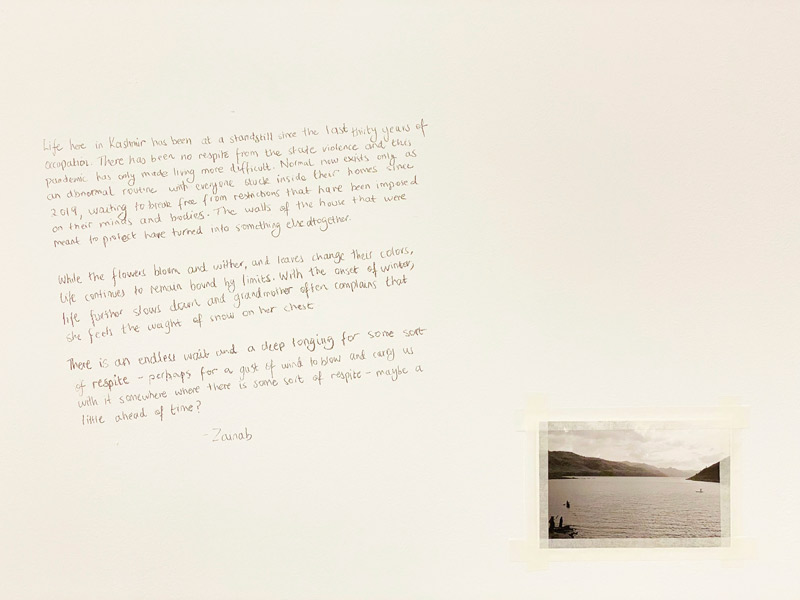 Life here in Kashmir has been at a standstill since the last thirty years of
occupation. There has been no respite from the state violence and this
pandemic has only made living more difficult. Normal now exists only as
an abnormal routine with everyone stuck inside their homes since
2019, waiting to break free from restrictions that have been imposed
on their minds and bodies. The walls of the house that were
meant to protect have turned into something else altogether.
While the flowers bloom and wither, and leaves change their colors,
life continues to remain bound by limits. With the onset of winter,
life further slows down and grandmother often complains that
she feels the weight of snow on her chest
There is an endless wait and a deep longing for some sort
of respite - perhaps for a gust of wind to blow and carry us
with it somewhere where there is some sort of respite - maybe a
little ahead of time?
- Zainab